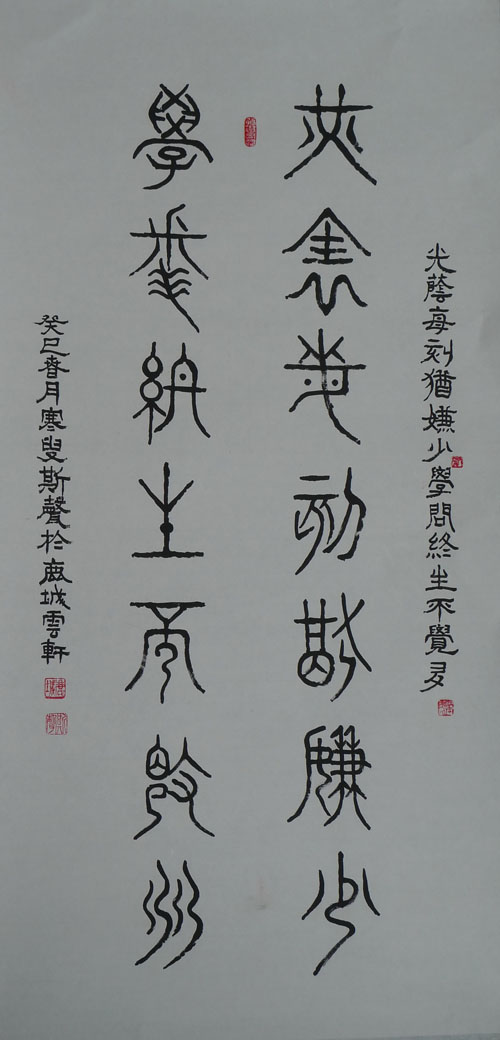 光蔭每刻猶嫌少學問終生不覺多
光陰每刻猶嫌少
學問終生不覺多
癸巳春月寒叟斯聲於鹿城雲軒